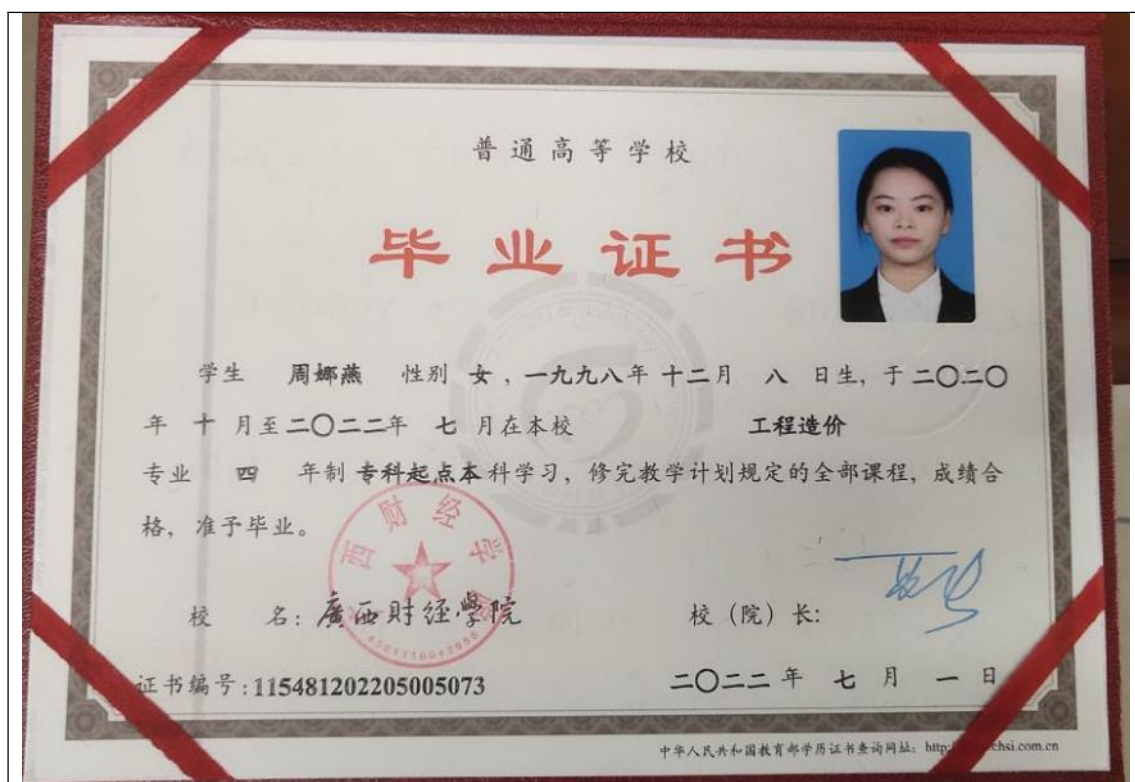 普通高等学校
毕业证书
学生 周娜燕 性别 女，一九九八年 十二月 八 日生，于 二〇二〇
年 十 月至 二〇二二年 七 月在本校 工程造价
专业 四 年制 专科起点本 科学习，修完教学计划规定的全部课程，成绩合
格，准予毕业。
西财经学
4501110042956
校 名：廣西财经學院 校（院）长：
证书编号：115481202205005073 二〇二二 年 七 月 一 日
中华人民共和国教育部学历证书查询网址：http: chsi.com.cn